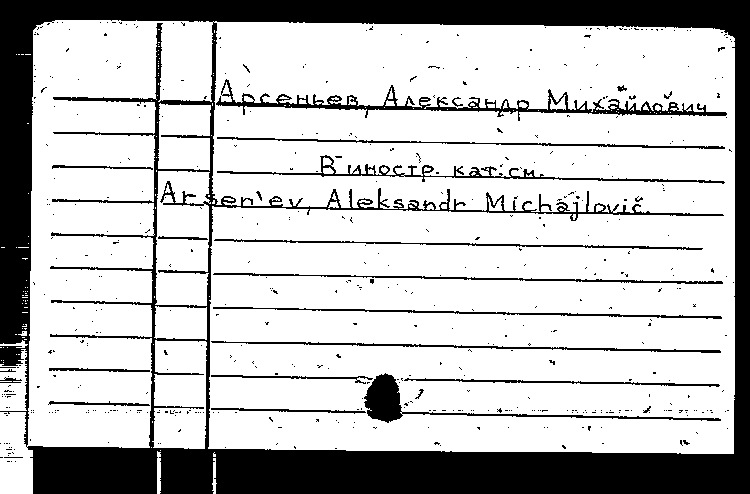 Арсеньев, Александр Михайлович
В иностр. кат. см.
Arsen'ev, Aleksandr Michajlovič.